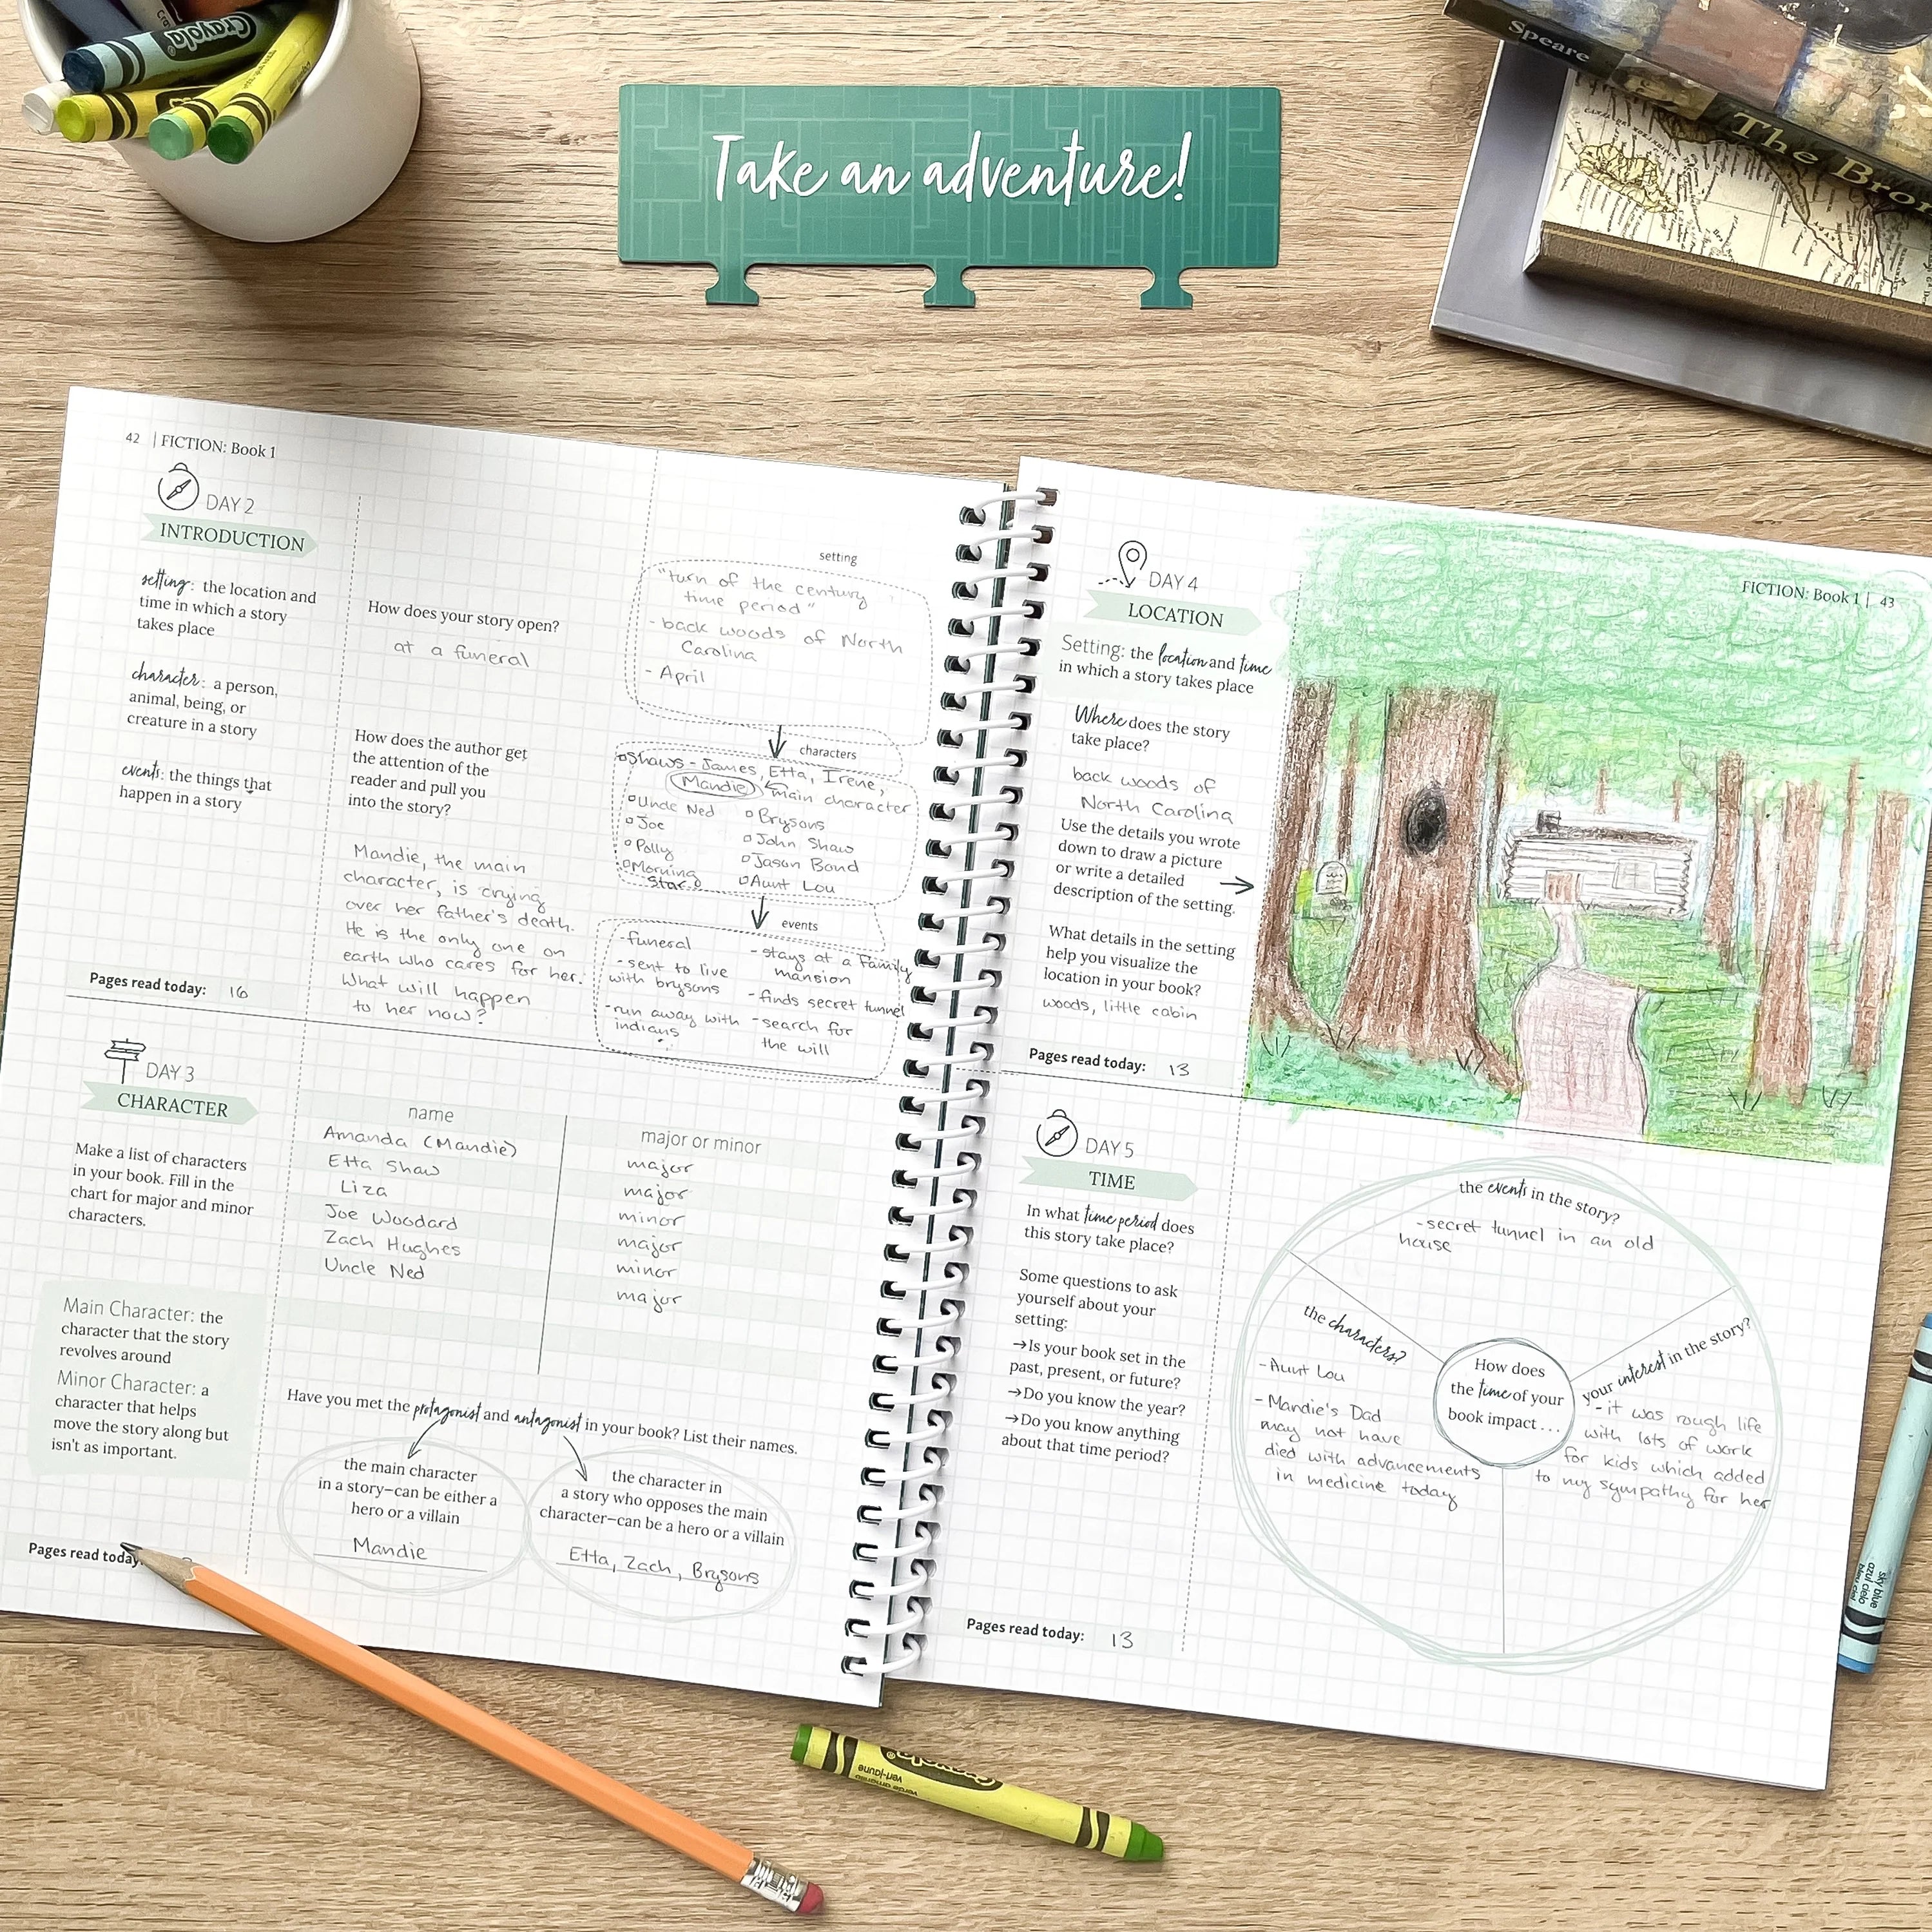 Crayola
Take an adventure!
Speare
The Bro
42 | FICTION: Book 1
DAY 2
INTRODUCTION
setting: the location and
time in which a story
takes place
character: a person,
animal, being, or
creature in a story
events: the things that
happen in a story
Pages read today: 16
How does your story open?
at a funeral
How does the author get
the attention of the
reader and pull you
into the story?
Mandie, the main
character, is crying
over her father's death.
He is the only one on
earth who cares for her.
What will happen
to her now?
setting
"turn of the century
time period"
- back woods of North
Carolina
- April
characters
Shaws - James, Etta, Irene,
Mandie main character
Uncle Ned
Joe
Polly
Morning
Star
Brysons
John Shaw
Jason Bond
Aunt Lou
events
- funeral
- sent to live
with brysons
- run away with
indians
- stays at a Family
mansion
- finds secret tunnel
- search for
the will
DAY 3
CHARACTER
Make a list of characters
in your book. Fill in the
chart for major and minor
characters.
Main Character: the
character that the story
revolves around
Minor Character: a
character that helps
move the story along but
isn't as important.
Pages read today:
name major or minor
Amanda (Mandie) major
Etta Shaw major
Liza minor
Joe Woodard major
Zach Hughes minor
Uncle Ned major
Have you met the protagonist and antagonist in your book? List their names.
the main character
in a story—can be either a
hero or a villain
Mandie
the character in
a story who opposes the main
character—can be a hero or a villain
Etta, Zach, Brysons
FICTION: Book 1 | 43
DAY 4
LOCATION
Setting: the location and time
in which a story takes place
Where does the story
take place?
back woods of
North Carolina
Use the details you wrote
down to draw a picture
or write a detailed
description of the setting.
What details in the setting
help you visualize the
location in your book?
woods, little cabin
Pages read today: 13
DAY 5
TIME
In what time period does
this story take place?
Some questions to ask
yourself about your
setting:
→Is your book set in the
past, present, or future?
→Do you know the year?
→Do you know anything
about that time period?
Pages read today: 13
How does
the time of your
book impact...
the events in the story?
- secret tunnel in an old
house
the characters?
- Aunt Lou
- Mandie's Dad
may not have
died with advancements
in medicine today
your interest in the story?
- it was rough life
with lots of work
for kids which added
to my sympathy for her
sky blue
azul cielo
Crayola
vert-jaune
verde amarillo